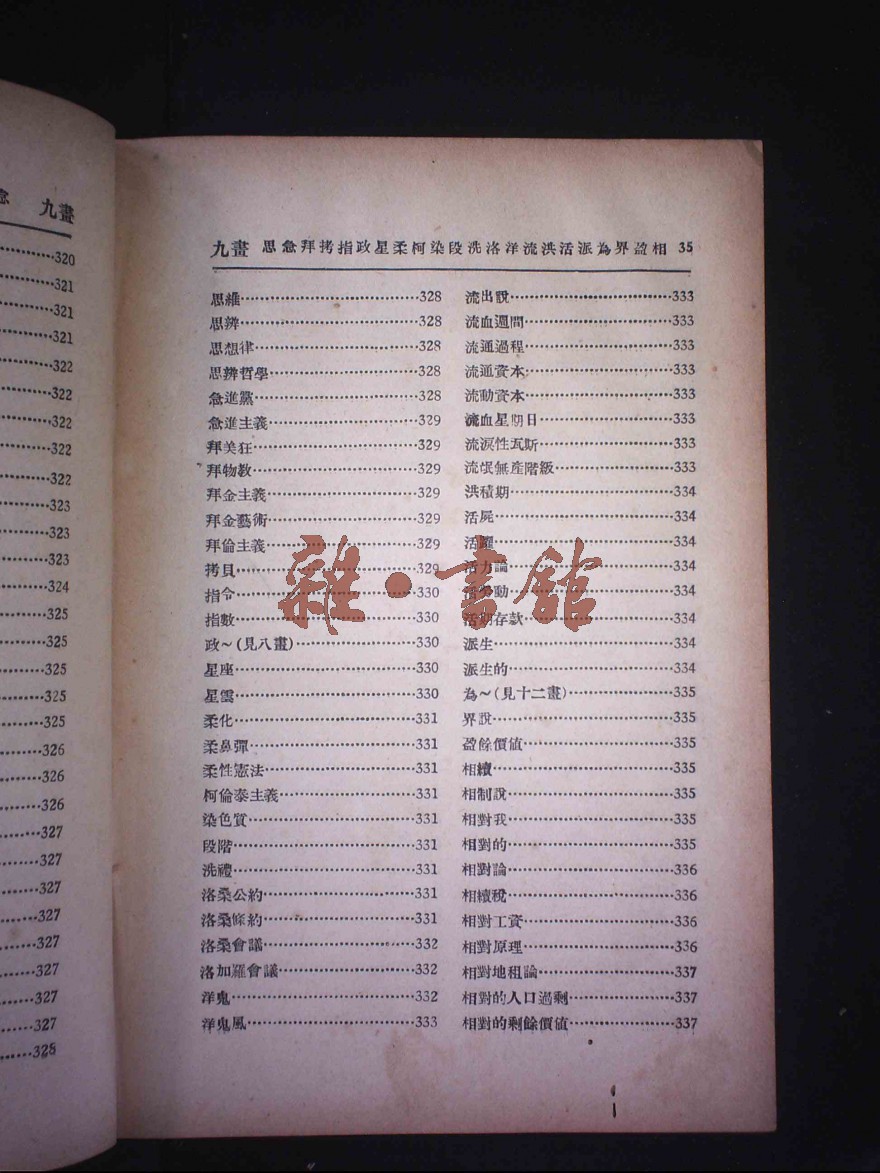 九畫
320
321
321
321
322
322
322
322
323
323
323
324
325
325
325
325
325
326
326
326
327
327
327
327
327
327
327
328
九畫 思急拜拷指政星柔柯染段洗洛洋流洪活派為界盈相 35
思維 328
思辨 328
思想律 328
思辨哲學 328
急進黨 328
急進主義 329
拜美狂 329
拜物教 329
拜金主義 329
拜金藝術 329
拜倫主義 329
拷貝 329
指令 330
指數 330
政~(見八畫) 330
星座 330
星雲 330
柔化 331
柔鼻彈 331
柔性憲法 331
柯倫泰主義 331
染色質 331
段階 331
洗禮 331
洛桑公約 331
洛桑條約 331
洛桑會議 332
洛加羅會議 332
洋鬼 332
洋鬼風 333
流出說 333
流血週間 333
流通過程 333
流通資本 333
流動資本 333
流血星期日 333
流淚性瓦斯 333
流氓無產階級 333
洪積期 334
活屍 334
活躍 334
活力論 334
活勞動 334
活期存款 334
派生 334
派生的 334
為~(見十二畫) 335
界說 335
盈餘價値 335
相續 335
相制說 335
相對我 335
相對的 335
相對論 336
相續稅 336
相對工資 336
相對原理 336
相對地租論 337
相對的人口過剩 337
相對的剩餘價値 337
雜·書館